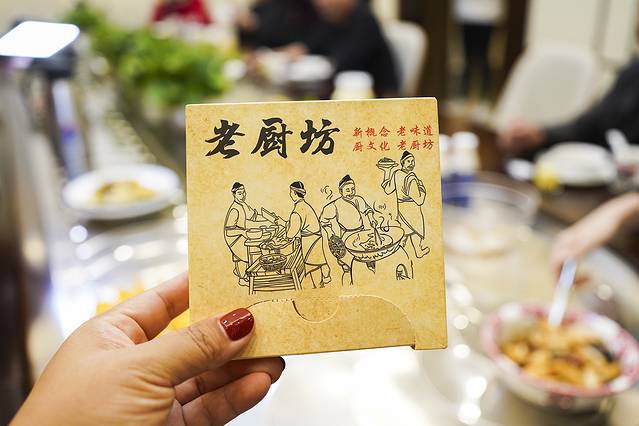 老厨坊
新概念 老味道
厨文化 老厨坊